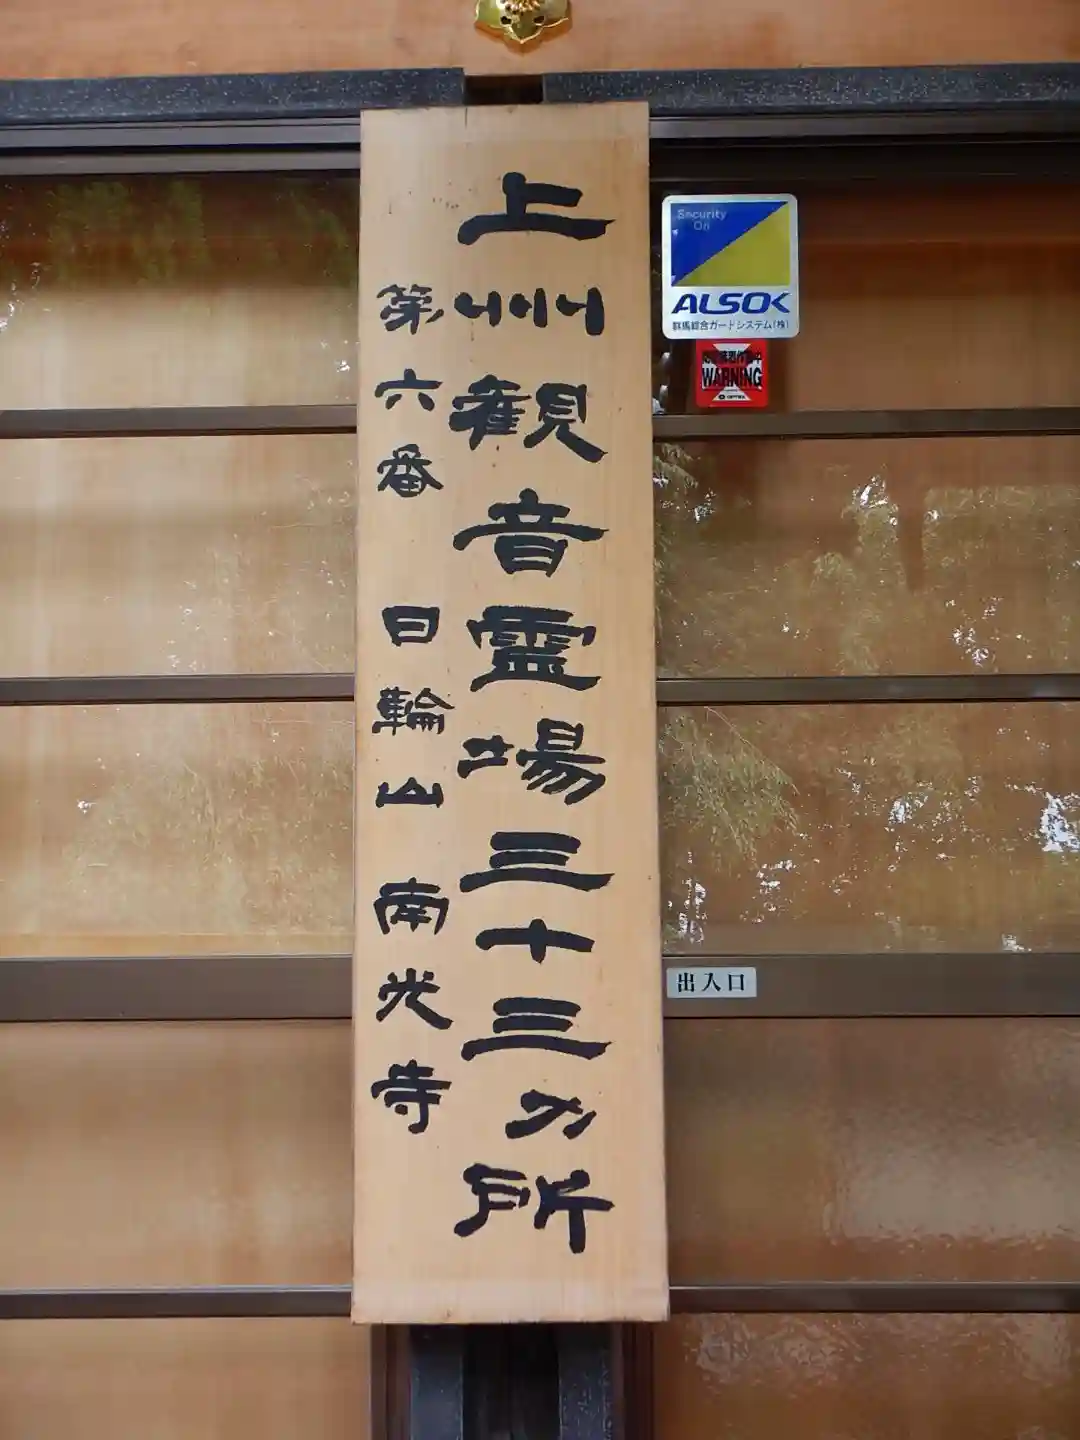 上州観音霊場三十三カ所
第六番 日輪山 南光寺
Security
On
ALSOK
群馬綜合ガードシステム(株)
WARNING
出入口